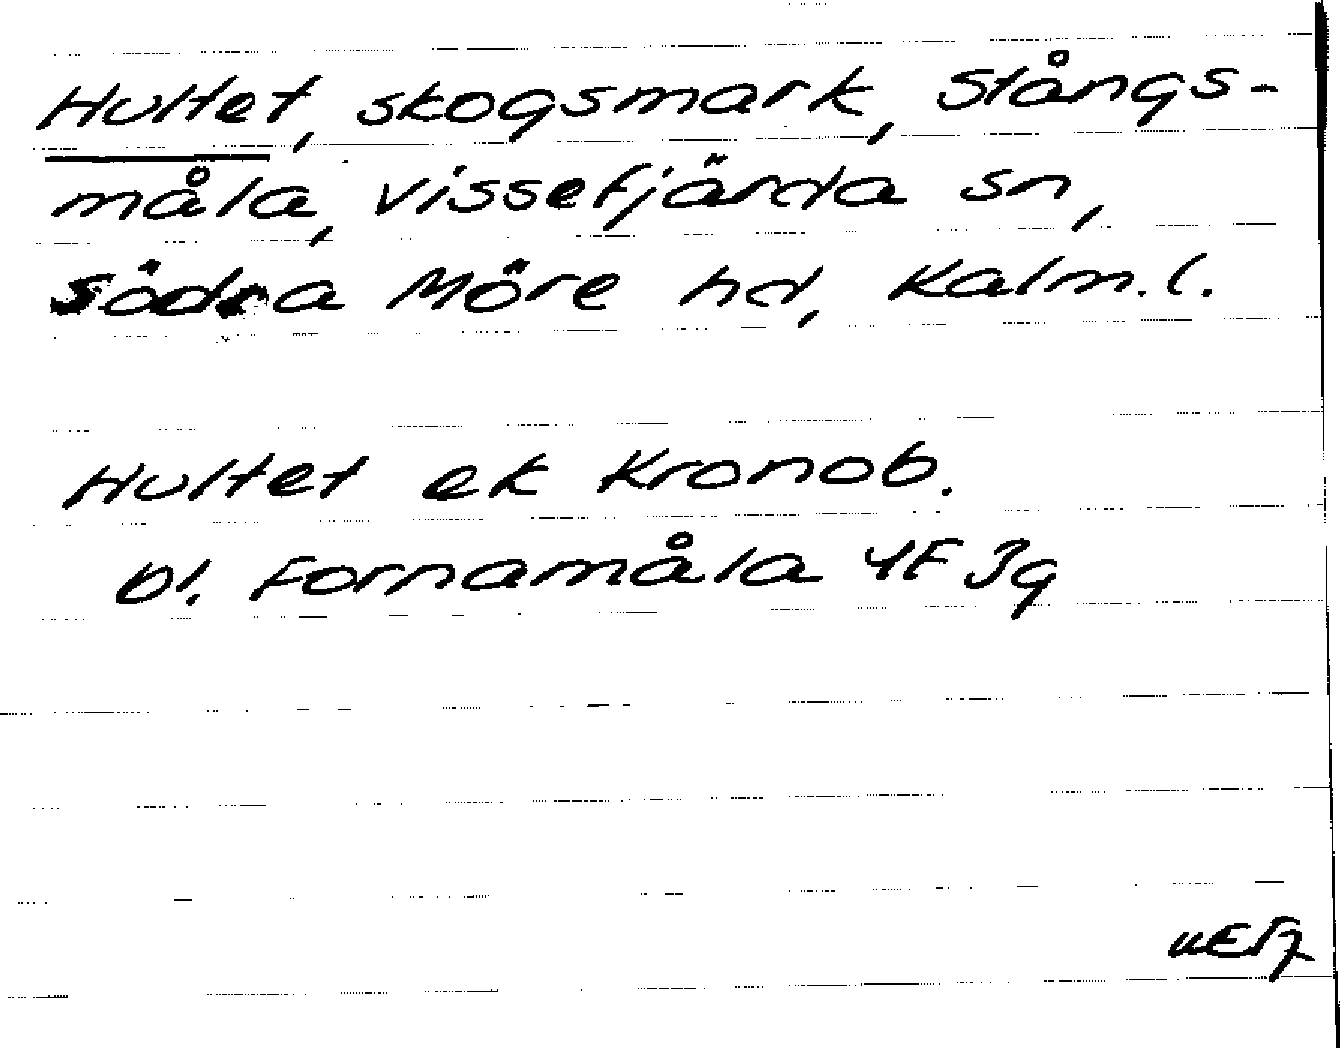 Hultet, skogsmark, Stångs-
måla, Vissefjärda sn,
Södra Möre hd, Kalm.l.
Hultet ek Kronob.
bl. Fornamåla 4F 3g